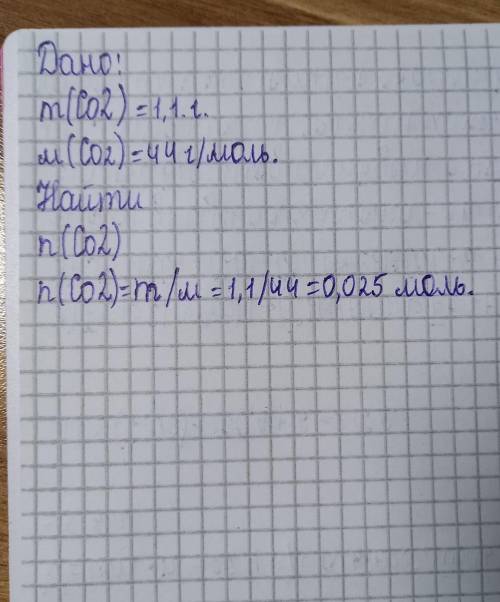 Дано:
m(Co2)=1,1.г.
м(Co2)=44 г/моль.
Найти
n(Co2)
n(Co2)=m/м=1,1/44=0,025 моль.